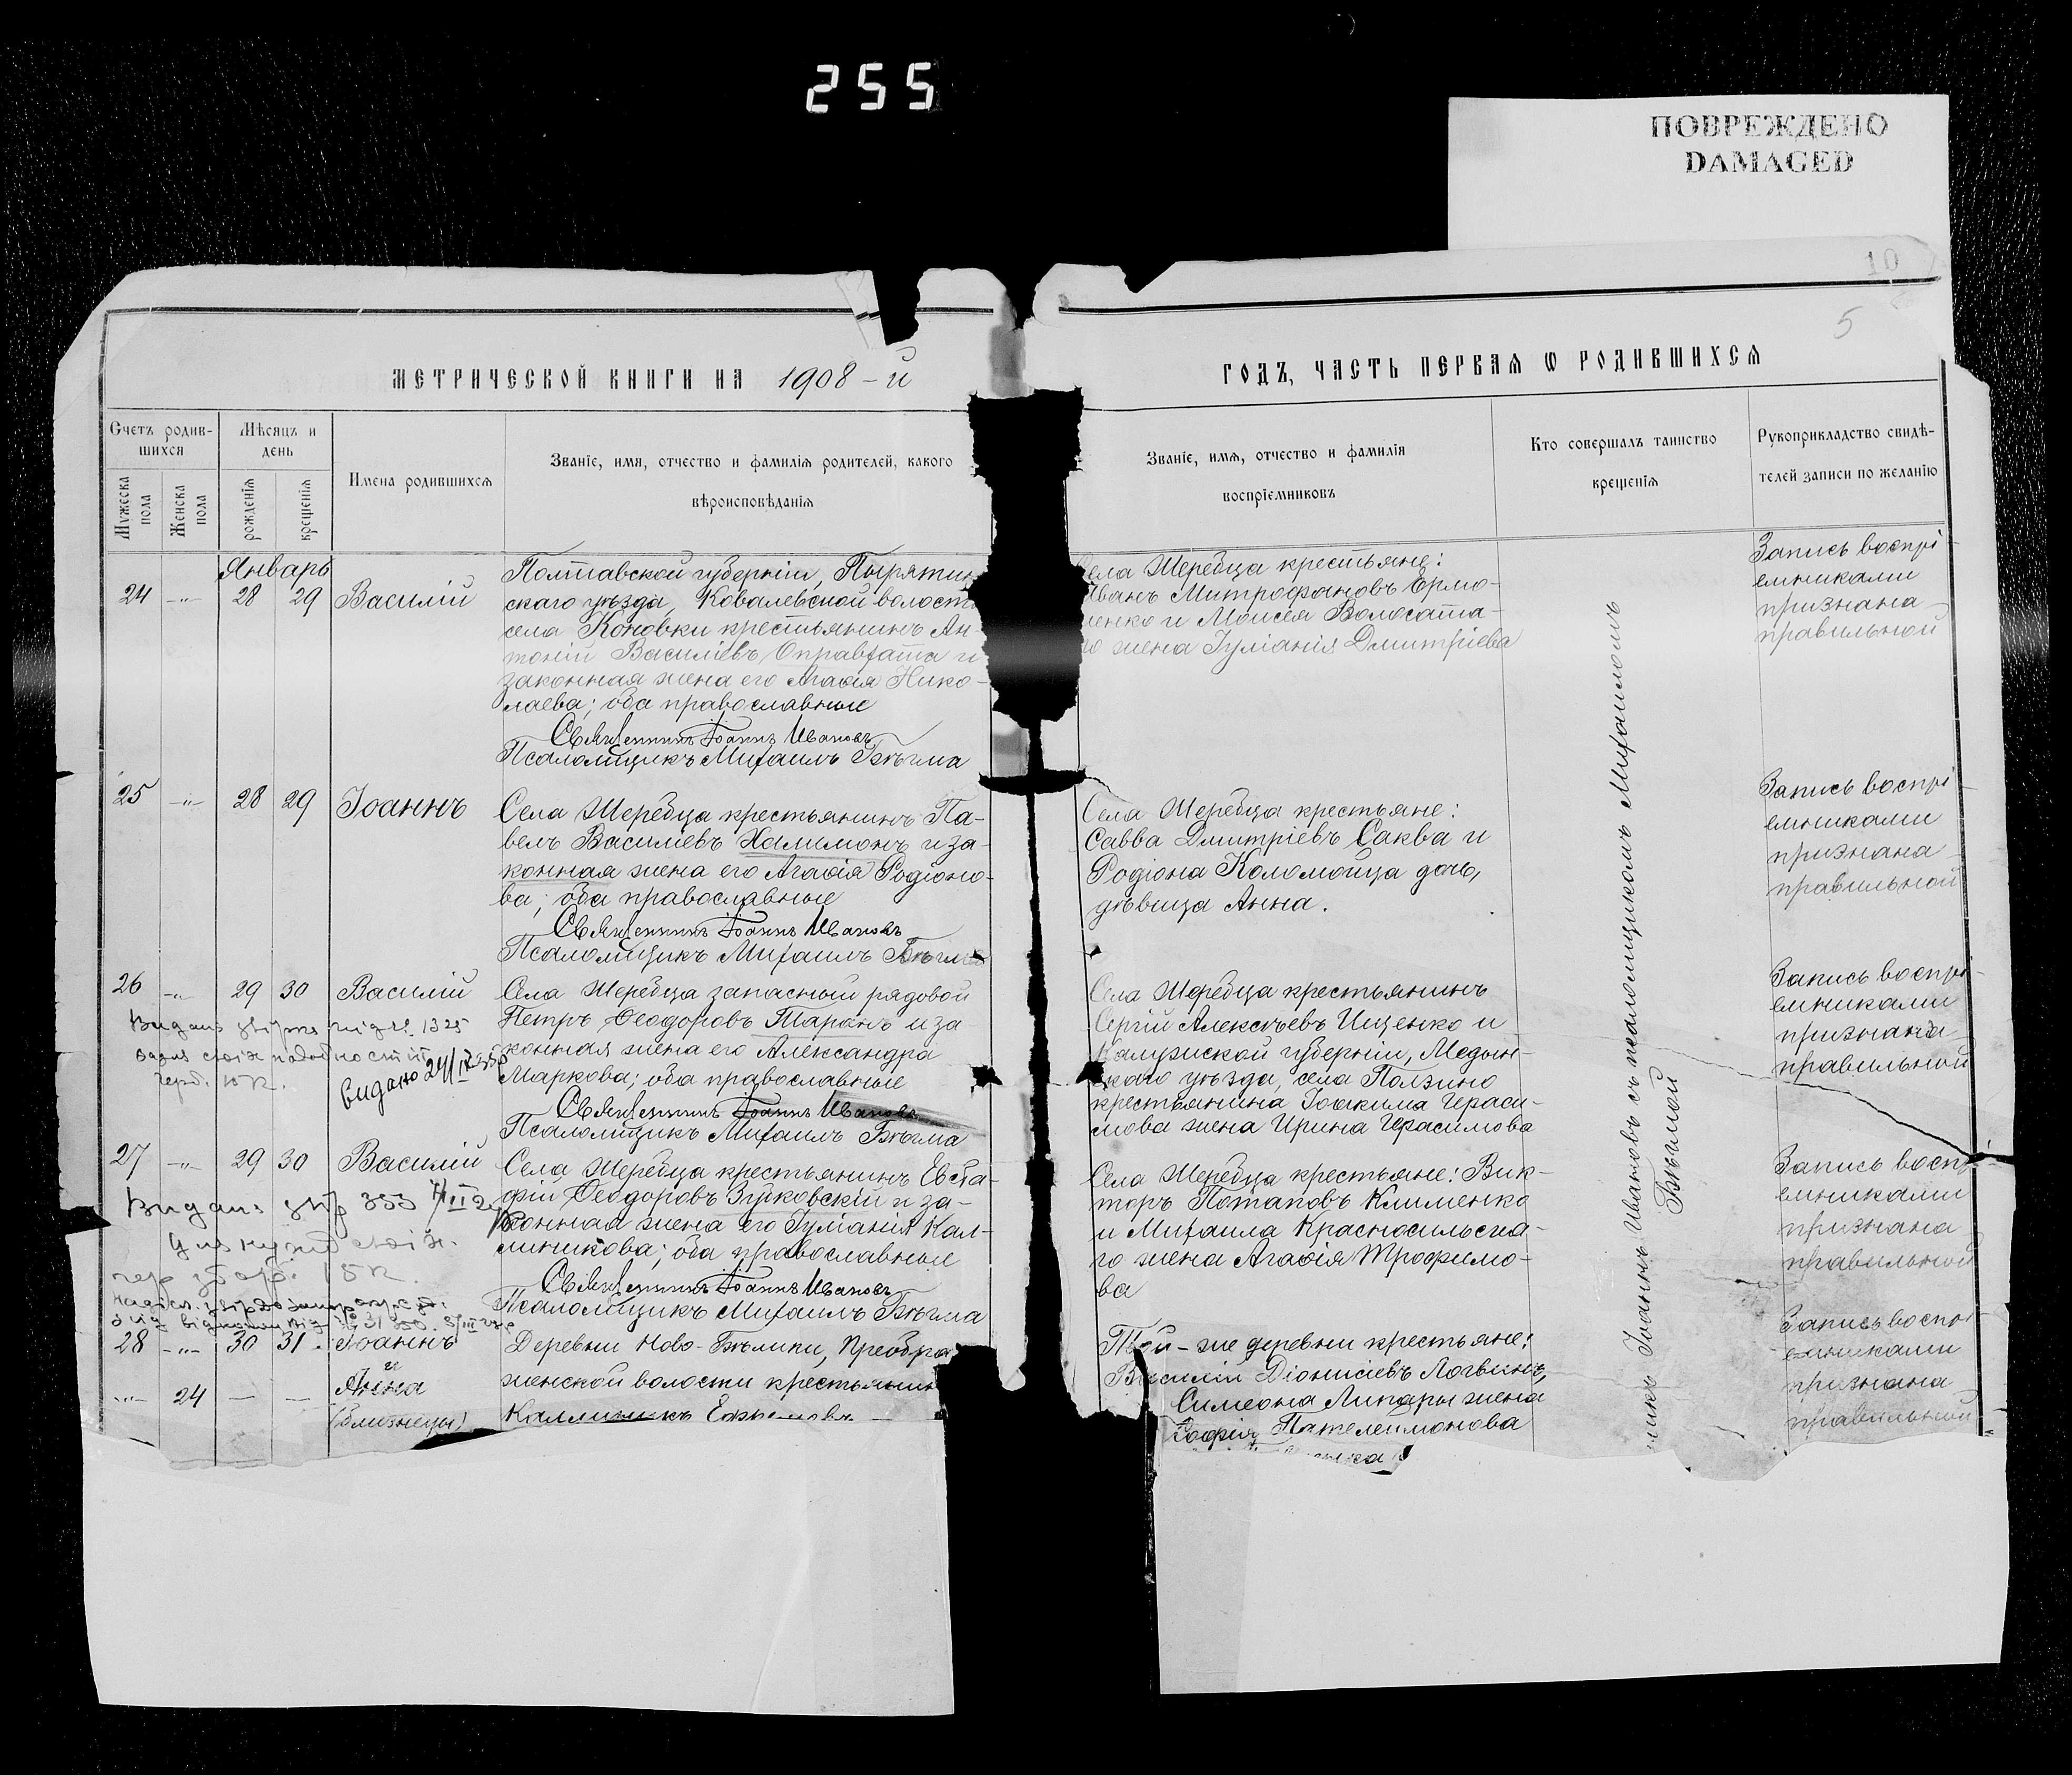 255
ПОВРЕЖДЕНО
DAMAGED
10
5
МЕТРИЧЕСКОЙ КНИГИ НА 1908-й
ГОДЪ, ЧАСТЬ ПЕРВАЯ Ѡ РОДИВШИХСЯ
Счетъ родив-
шихся
Мужеска пола
Женска пола
Мѣсяцъ и
день
рожденія
крещенія
Имена родившихся
Званіе, имя, отчество и фамилія родителей, какого
вѣроисповѣданія
Званіе, имя, отчество и фамилія
воспріемниковъ
Кто совершалъ таинство
крещенія
Рукоприкладство свидѣ-
телей записи по желанію
Январь
24 -"- 28 29 Василій
Полтавской губерніи, Пирятин
скаго уѣзда, Ковалевской волост
села Коновки крестьянинъ Ан-
тоній Василіевъ Оправхата и
законная жена его Агаѳія Нико-
лаева; оба православные
Священникъ Іоаннъ Ивановъ
Псаломщикъ Михаилъ Бѣгма
Села Жеребца крестьяне:
Иванъ Митрофановъ Ермо-
ленко и Моисея Волосата-
го жена Іуліанія Дмитріева
Запись воспрі-
емниками
признана
правильной
25 -"- 28 29 Іоаннъ
Села Жеребца крестьянинъ Па-
велъ Василіевъ Халимонъ и за-
конная жена его Агаѳія Родіоно-
ва; оба православные
Священникъ Іоаннъ Ивановъ
Псаломщикъ Михаилъ Бѣгма
Села Жеребца крестьяне:
Савва Дмитріевъ Саква и
Родіона Коломойца дочь,
дѣвица Анна.
Запись воспрі-
емниками
признана
правильной
26 -"- 29 30 Василій
Села Жеребца запасный рядовой
Петръ Ѳеодоровъ Таранъ и за
конная жена его Александра
Маркова; оба православные
Священникъ Іоаннъ Ивановъ
Псаломщикъ Михаилъ Бѣгма
видано 24/IV
Села Жеребца крестьянинъ
Сергій Алексѣевъ Ищенко и
Калужской губерніи, Медын-
скаго уѣзда, села Ползино
крестьянина Іоакима Гераси-
мова жена Ирина Герасимова
Запись воспрі-
емниками
признана
правильной
27 -"- 29 30 Василій
Села Жеребца крестьянинъ Евста-
фій Ѳеодоровъ Зурковскій и за-
конная жена его Іуліанія Кал-
линикова; оба православные
Священникъ Іоаннъ Ивановъ
Псаломщикъ Михаилъ Бѣгма
Села Жеребца крестьяне: Вик-
торъ Потаповъ Клименко
и Михаила Красносельска-
го жена Агаѳія Трофимо-
ва
Запись воспрі-
емниками
признана
правильной
28 -"- 30 31 Іоаннъ
и
-"- 24 — — Анна
(близнецы)
Деревни Ново-Бѣлики, Преобра
женской волости крестьянин
Каллиникъ
Той-же деревни крестьяне:
Василій Діонисіевъ Логвинъ,
Симеона Липары жена
Софія Пантелеимонова
Запись воспрі-
емниками
признана
правильной
Іоаннъ Ивановъ съ псаломщикомъ Михаиломъ
Бѣгмой